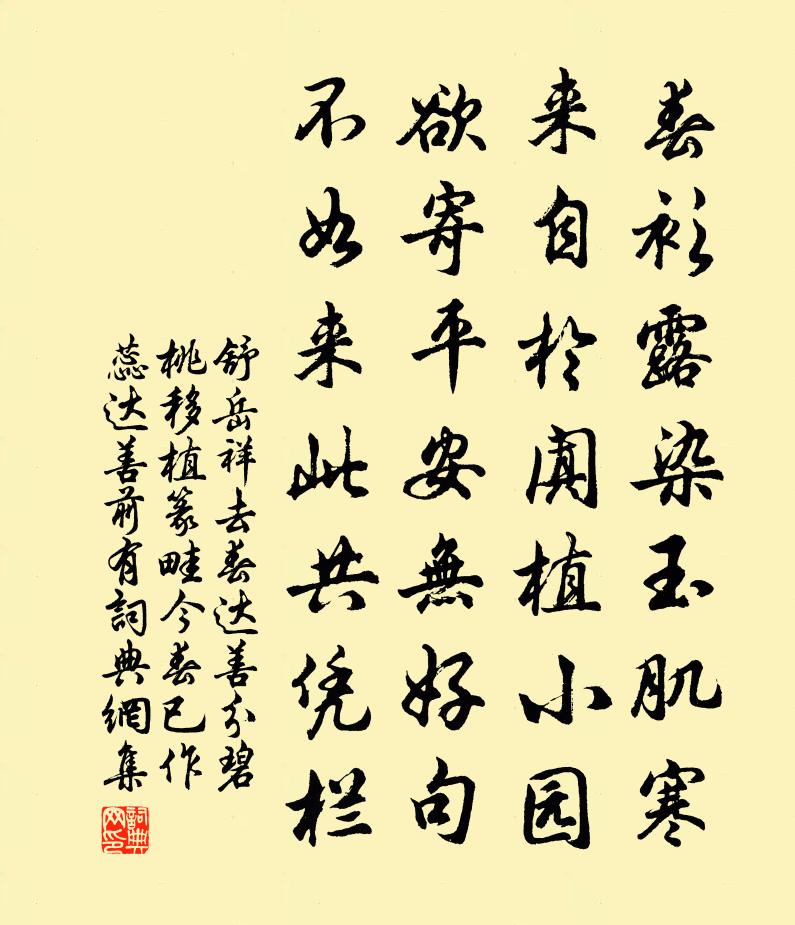 春衫露染玉肌寒
来自於阗植小园
欲寄平安無好句
不如来此共凭栏
舒岳祥去春达善分碧
桃移植篆畦今春已作
蕊达善前有詞典網集
詞典网印